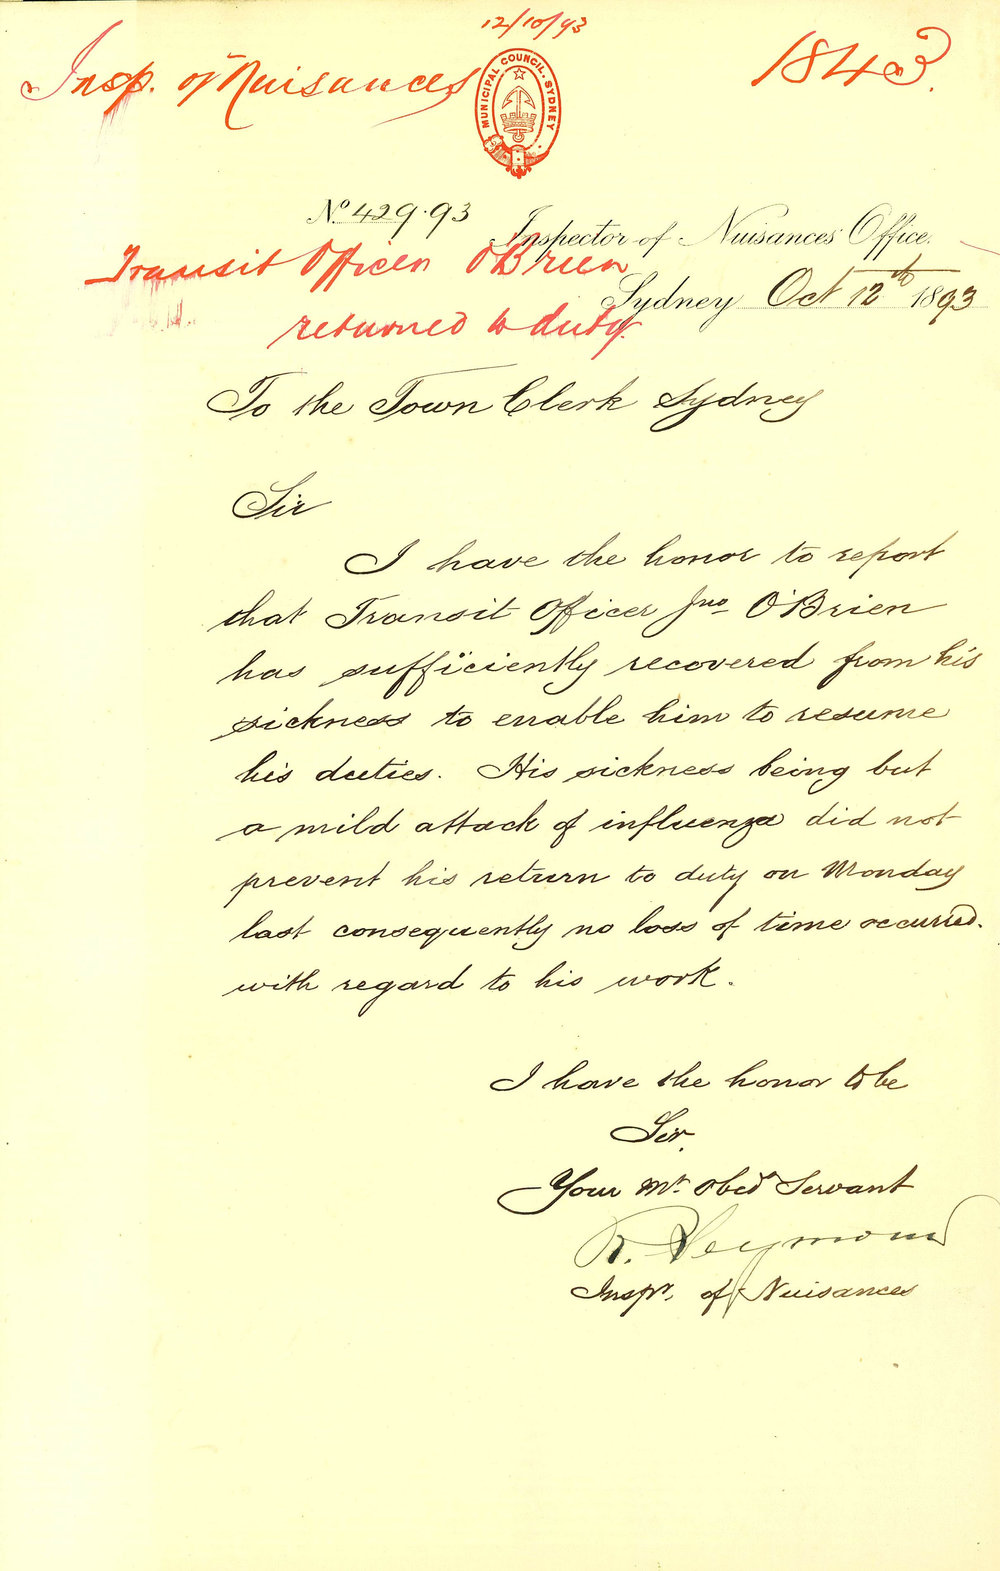 12/10/93
Insp. of Nuisances
1843.
MUNICIPAL COUNCIL. SYDNEY
No. 429.93
Inspector of Nuisances Office.
Transit Officer O'Brien
Sydney Oct 12th 1893
returned to duty.
To the Town Clerk Sydney
Sir
I have the honor to report
that Transit Officer Jno. O'Brien
has sufficiently recovered from his
sickness to enable him to resume
his duties. His sickness being but
a mild attack of influenza did not
prevent his return to duty on Monday
last consequently no loss of time occurred.
with regard to his work.
I have the honor to be
Sir.
Your Mt. Obed Servant
R. Seymour
Inspr. of Nuisances